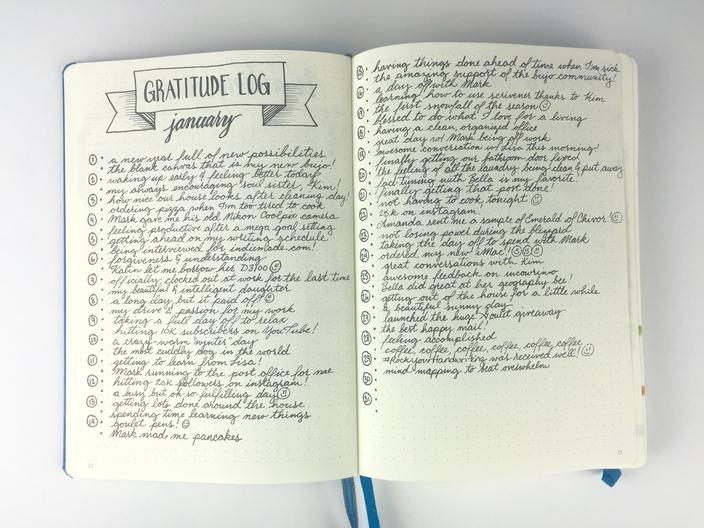 GRATITUDE LOG
january
1 • a new year full of new possibilities
• the blank canvas that is my new bujo!
2 • waking up early & feeling better today
• my always encouraging soul sister, Kim!
3 • how nice our house looks after cleaning day!
• ordering pizza when I'm too tired to cook
4 • Mark gave me his old Nikon Coolpix camera
• feeling productive after a mega goal setting
5 • getting ahead on my writing schedule
• being interviewed for indiemade.com!
6 • forgiveness & understanding
• Katin let me borrow her D3100
7 • officially clocked out at work for the last time
• my beautiful & intelligent daughter
8 • a long day but it paid off
• my drive & passion for my work
9 • taking a full day off to relax
• hitting 10K subscribers on YouTube!
10 • a crazy warm "winter" day
• the most cuddly dog in the world
11 • getting to learn from Lisa!
• Mark running to the post office for me
12 • hitting 20K followers on instagram!
• a busy but oh-so fulfilling day
13 • getting lots done around the house
• spending time learning new things
14 • goulet pens!
• Mark mad me pancakes
22
15 • having things done ahead of time when I'm sick
• the amazing support of the bujo community!
16 • a day off with Mark
• learning how to use scrivener thanks to Kim
17 • the first snowfall of the season
• blessed to do what I love for a living
18 • having a clean, organized office
• great day w/ Mark being off work
19 • awesome conversation w/ Lisa this morning!
• finally getting our bathroom door fixed
20 • the feeling of all the laundry being clean & put away
• face timing with Bella is my favorite!
21 • finally getting that post done!
• not having to cook tonight
22 • 25K on instagram
• Amanda sent me a sample of Emerald of Chivor!
23 • not losing power during the blizzard
• taking the day off to spend with Mark
24 • ordered my new iMac!
• great conversations with Kim
25 • awesome feedback on
• Bella did great at her geography bee!
26 • getting out of the house for a little while
• a beautiful sunny day
27 • launched the huge Goulet giveaway
• the best happy mail!
28 • feeling accomplished
• coffee, coffee, coffee, coffee, coffee, coffee
29 • #RockYourHandwriting was received well!
• mind mapping to beat overwhelm
30 •
•
31 •
•
23